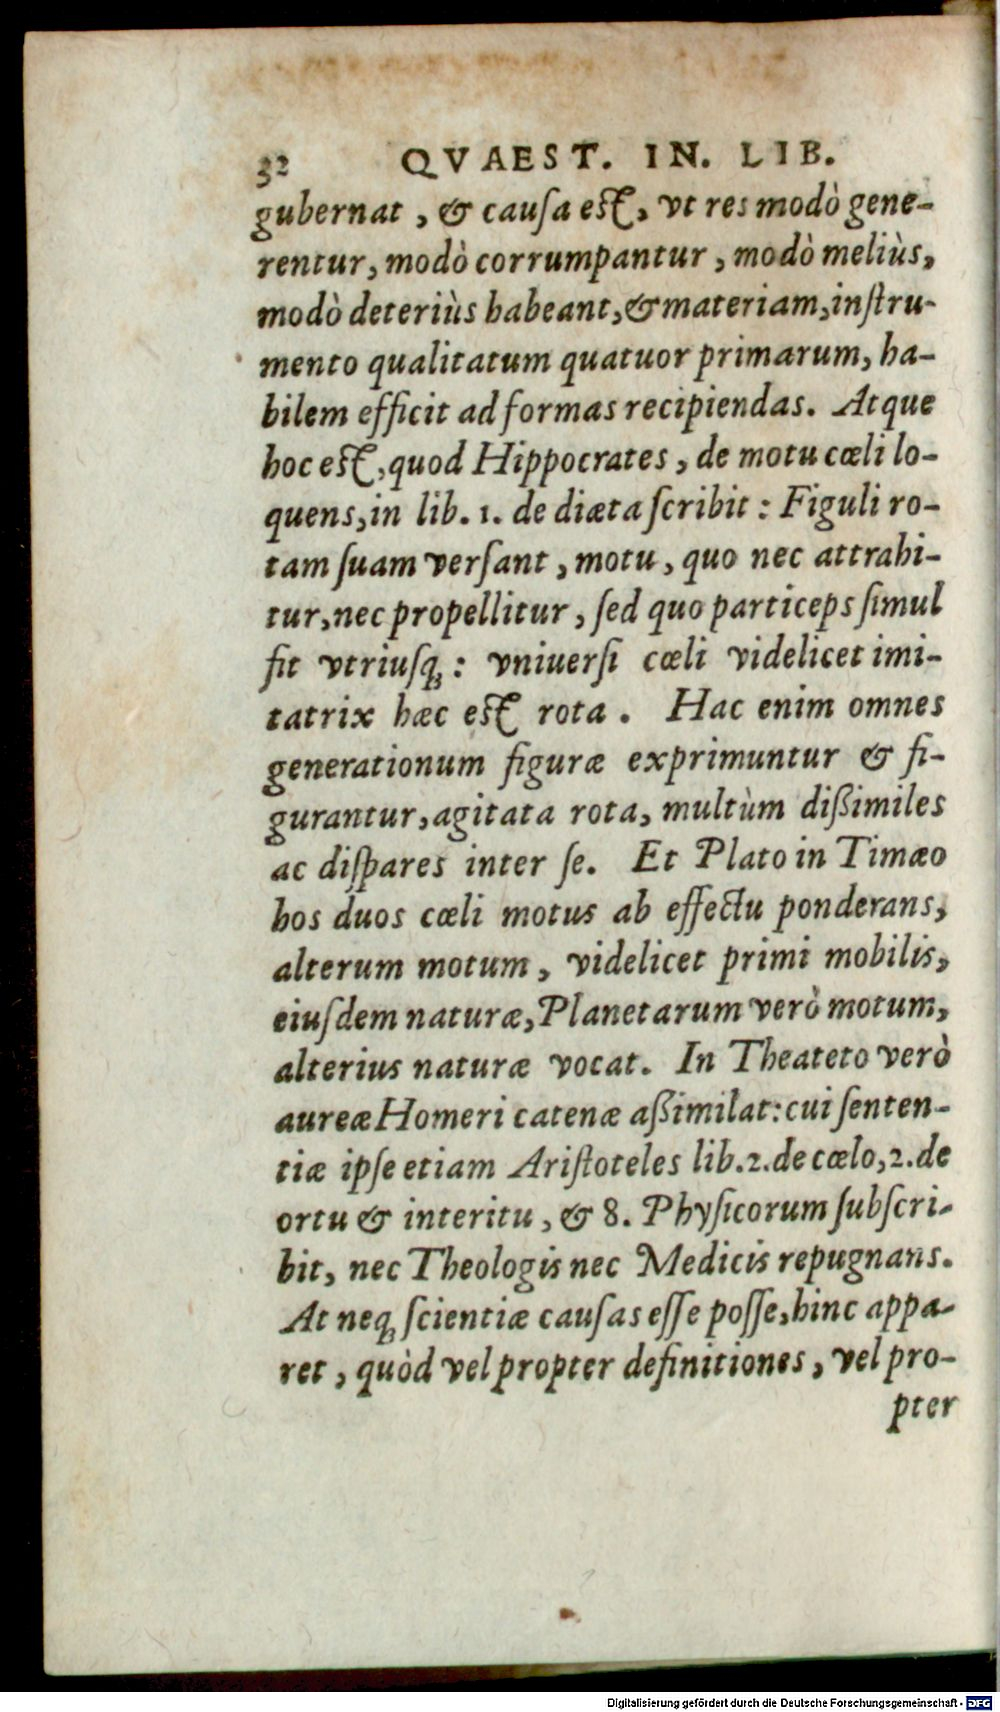 32 QVAEST. IN. LIB.
gubernat, & cauſa eſt, vt res modò gene-
rentur, modò corrumpantur, modò meliùs,
modò deteriùs habeant, & materiam, inſtru-
mento qualitatum quatuor primarum, ha-
bilem efficit ad formas recipiendas. Atque
hoc eſt, quod Hippocrates, de motu cœli lo-
quens, in lib. 1. de diæta ſcribit: Figuli ro-
tam ſuam verſant, motu, quo nec attrahi-
tur, nec propellitur, ſed quo particeps ſimul
fit vtriuſq;: vniuerſi cœli videlicet imi-
tatrix hæc eſt rota. Hac enim omnes
generationum figuræ exprimuntur & fi-
gurantur, agitata rota, multùm diſsimiles
ac diſpares inter ſe. Et Plato in Timæo
hos duos cœli motus ab effectu ponderans,
alterum motum, videlicet primi mobilis,
eiuſdem naturæ, Planetarum verò motum,
alterius naturæ vocat. In Theateto verò
aureæ Homeri catenæ aſsimilat: cui ſenten-
tiæ ipſe etiam Ariſtoteles lib. 2. de cœlo, 2. de
ortu & interitu, & 8. Phyſicorum ſubſcri-
bit, nec Theologis nec Medicis repugnans.
At neq; ſcientiæ cauſas eſſe poſſe, hinc appa-
ret, quòd vel propter definitiones, vel pro-
pter
Digitalisierung gefördert durch die Deutsche Forschungsgemeinschaft - DFG